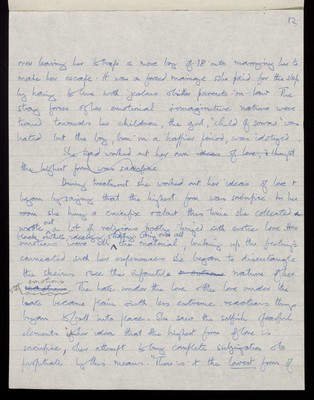 12
over leaving her & traps a nice boy of 18 into marrying her to
make her escape. It was a forced marriage she paid for this step
by having to live with jealous & bitter parents-in-law. The
stray forces of her emotional & imaginative nature were
turned towards her children, the girl, "child of sorrow" was
hated but the boy, born in a happier period, was idolized.
She had worked out her own ideas of love, & thought
the highest form was sacrifice
During treatment she worked out her ideas of love &
began by saying that the highest form was sacrifice. In her
room she hung a crucifix & about this time she collected &
wrote out a lot of religious poetry tinged with erotic love. Her
emotions were all this material, linking up the feelings
connected with her experiences she began to disentangle
the skeins & see the infantile nature of her
emotions
The hate under the love & the love under the
hate became plain & with less extreme reactions things
began to fall into place. She saw the selfish & fearful
elements in her idea that the highest form of love is
sacrifice, her attempt to bring complete subjugation & to
propitiate by this means. "There is & the lowest form of